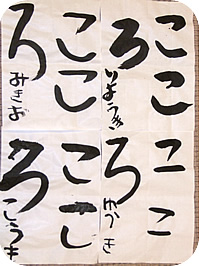 ここ
ろ
ここ
ろ
みきお
ここ
ろ
ゆうき
ここ
ろ
こうき